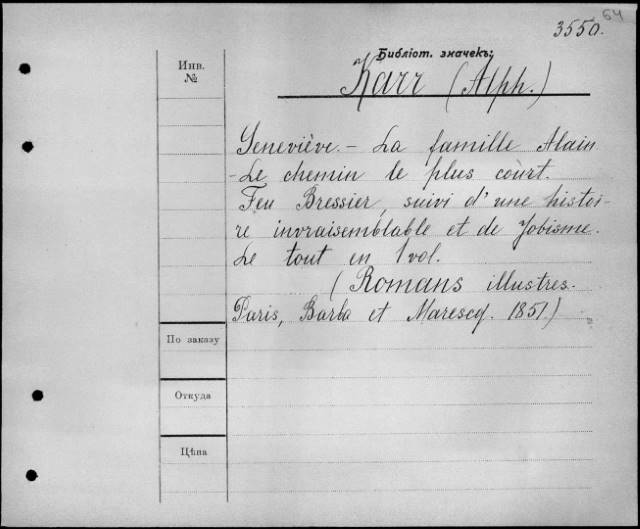 64
3550.
Библіот. значекъ:
Инв.
№
Karr (Alph.)
Geneviève. – La famille Alain
- Le chemin le plus court.
Feu Bressier, suivi d'une histoi-
re invraisemblable et de Jobisme.
Le tout en 1 vol.
(Romans illustres.
Paris, Barba et Marescq. 1851.)
По заказу
Откуда
Цѣна